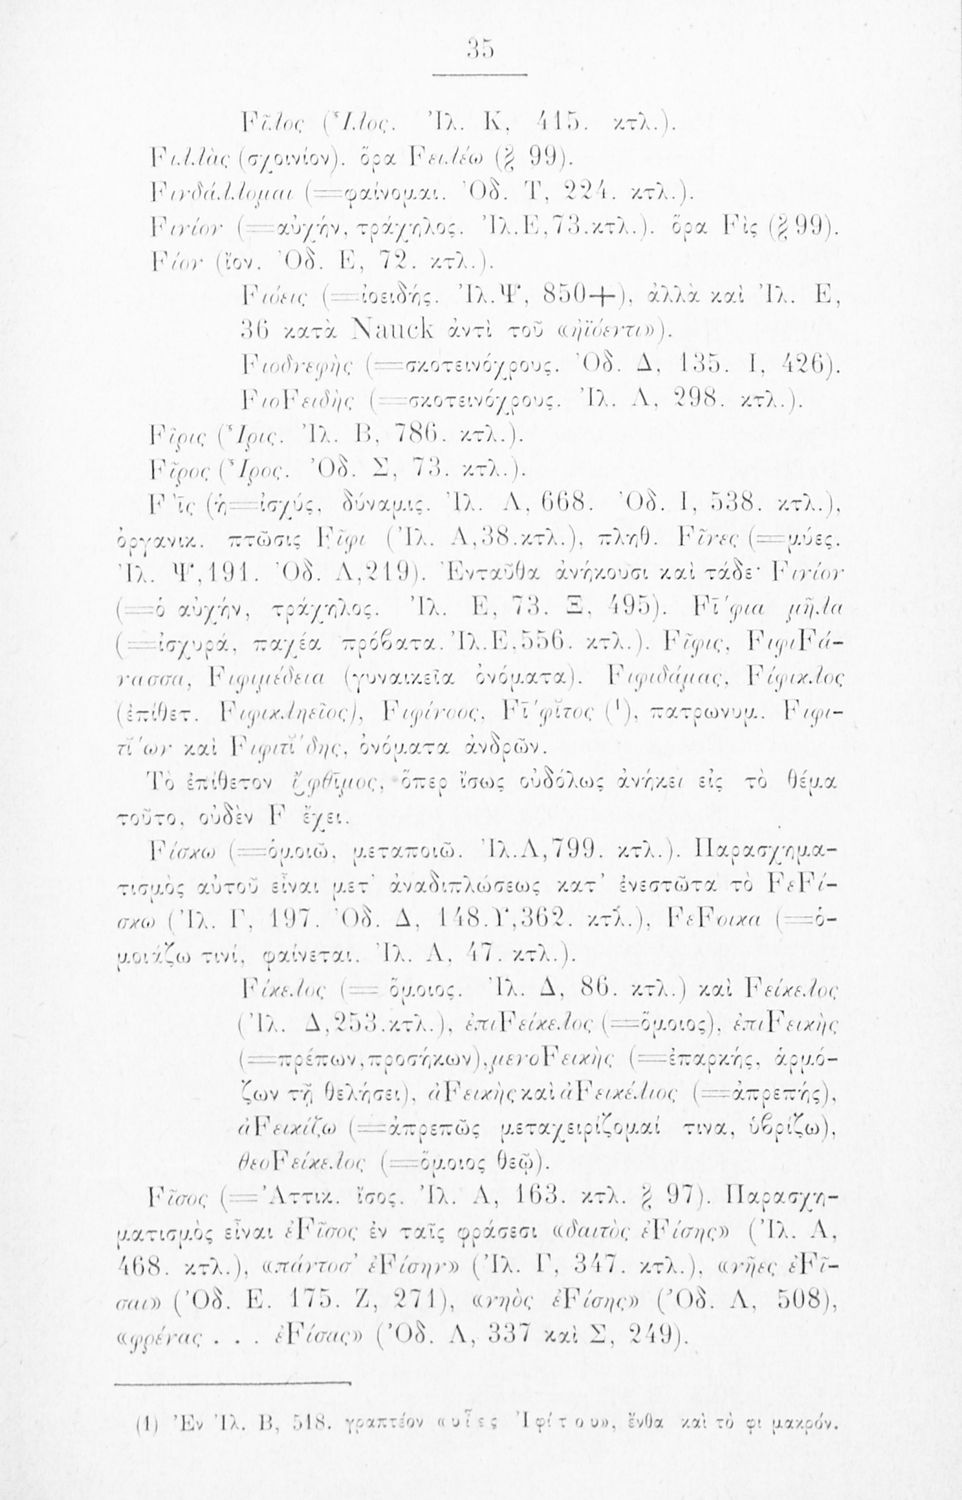 35
Fῖλος (Ἶλος. Ἰλ. Κ, 415. κτλ.).
Fιλλὰς (σχοινίον). ὅρα Fειλέω (§ 99).
Fινδάλλομαι (=φαίνομαι. Ὀδ. Τ, 224. κτλ.).
Fινίον (=αὐχήν, τράχηλος. Ἰλ.Ε,73.κτλ.). ὅρα Fὶς (§ 99).
Fίον (ἴον. Ὀδ. Ε, 72. κτλ.).
Fιόεις (=ἰοειδής. Ἰλ.Ψ, 850+), ἀλλὰ καὶ Ἰλ. Ε,
36 κατὰ Nauck ἀντὶ τοῦ «ἠϊόεντι»).
Fιοδνεφὴς (=σκοτεινόχρους. Ὀδ. Δ, 135. Ι, 426).
FιοFειδὴς (=σκοτεινόχρους. Ἰλ. Λ, 298. κτλ.).
Fῖρις (Ἶρις. Ἰλ. Β, 786. κτλ.).
Fῖρος (Ἶρος. Ὀδ. Σ, 73. κτλ.).
Fῑ̀ς (ἡ=ἰσχύς, δύναμις. Ἰλ. Λ, 668. Ὀδ. Ι, 538. κτλ.),
ὀργανικ. πτῶσις Fῖφι (Ἰλ. Α,38.κτλ.), πληθ. Fῖνες (=μύες.
Ἰλ. Ψ,191. Ὀδ. Λ,219). Ἐνταῦθα ἀνήκουσι καὶ τάδε· Fινίον
(=ὁ αὐχήν, τράχηλος. Ἰλ. Ε, 73. Ξ, 495). Fῑ́φια μῆλα
(=ἰσχυρά, παχέα πρόβατα. Ἰλ.Ε,556. κτλ.). Fῖφις, FιφιFά-
νασσα, Fιφιμέδεια (γυναικεῖα ὀνόματα). Fιφιδάμας, Fίφικλος
(ἐπίθετ. Fιφικληεῖος), Fιφίνοος, Fῑ́φῑτος (¹), πατρωνυμ. Fιφι-
τῑ́ων καὶ Fιφιτῑ́δης, ὀνόματα ἀνδρῶν.
Τὸ ἐπίθετον ἴφθῑμος, ὅπερ ἴσως οὐδόλως ἀνήκει εἰς τὸ θέμα
τοῦτο, οὐδὲν F ἔχει.
Fίσκω (=ὁμοιῶ, μεταποιῶ. Ἰλ.Λ,799. κτλ.). Παρασχημα-
τισμὸς αὐτοῦ εἶναι μετ' ἀναδιπλώσεως κατ' ἐνεστῶτα τὸ FεFί-
σκω (Ἰλ. Γ, 197. Ὀδ. Δ, 148.Υ,362. κτλ.), FέFοικα (=ὁ-
μοιάζω τινί, φαίνεται. Ἰλ. Α, 47. κτλ.).
Fίκελος (= ὅμοιος. Ἰλ. Δ, 86. κτλ.) καὶ Fείκελος
(Ἰλ. Δ,253.κτλ.), ἐπιFείκελος (=ὅμοιος), ἐπιFεικὴς
(=πρέπων,προσήκων),μενοFεικὴς (=ἐπαρκής, ἁρμό-
ζων τῇ θελήσει), ἀFεικὴς καὶ ἀFεικέλιος (=ἀπρεπής),
ἀFεικίζω (=ἀπρεπῶς μεταχειρίζομαί τινα, ὑβρίζω),
θεοFείκελος (=ὅμοιος θεῷ).
Fῖσος (=Ἀττικ. ἴσος. Ἰλ. Α, 163. κτλ. § 97). Παρασχη-
ματισμὸς εἶναι ἐFῖσος ἐν ταῖς φράσεσι «δαιτὸς ἐFίσης» (Ἰλ. Α,
468. κτλ.), «πάντοσ' ἐFίσην» (Ἰλ. Γ, 347. κτλ.), «νῆες ἐFῖ-
σαι» (Ὀδ. Ε. 175. Ζ, 271), «νηὸς ἐFίσης» (Ὀδ. Λ, 508),
«φρένας . . . ἐFίσας» (Ὀδ. Λ, 337 καὶ Σ, 249).
(1) Ἐν Ἰλ. Β, 518. γραπτέον «υἷες Ἰφίτου», ἔνθα καὶ τὸ φι μακρόν.